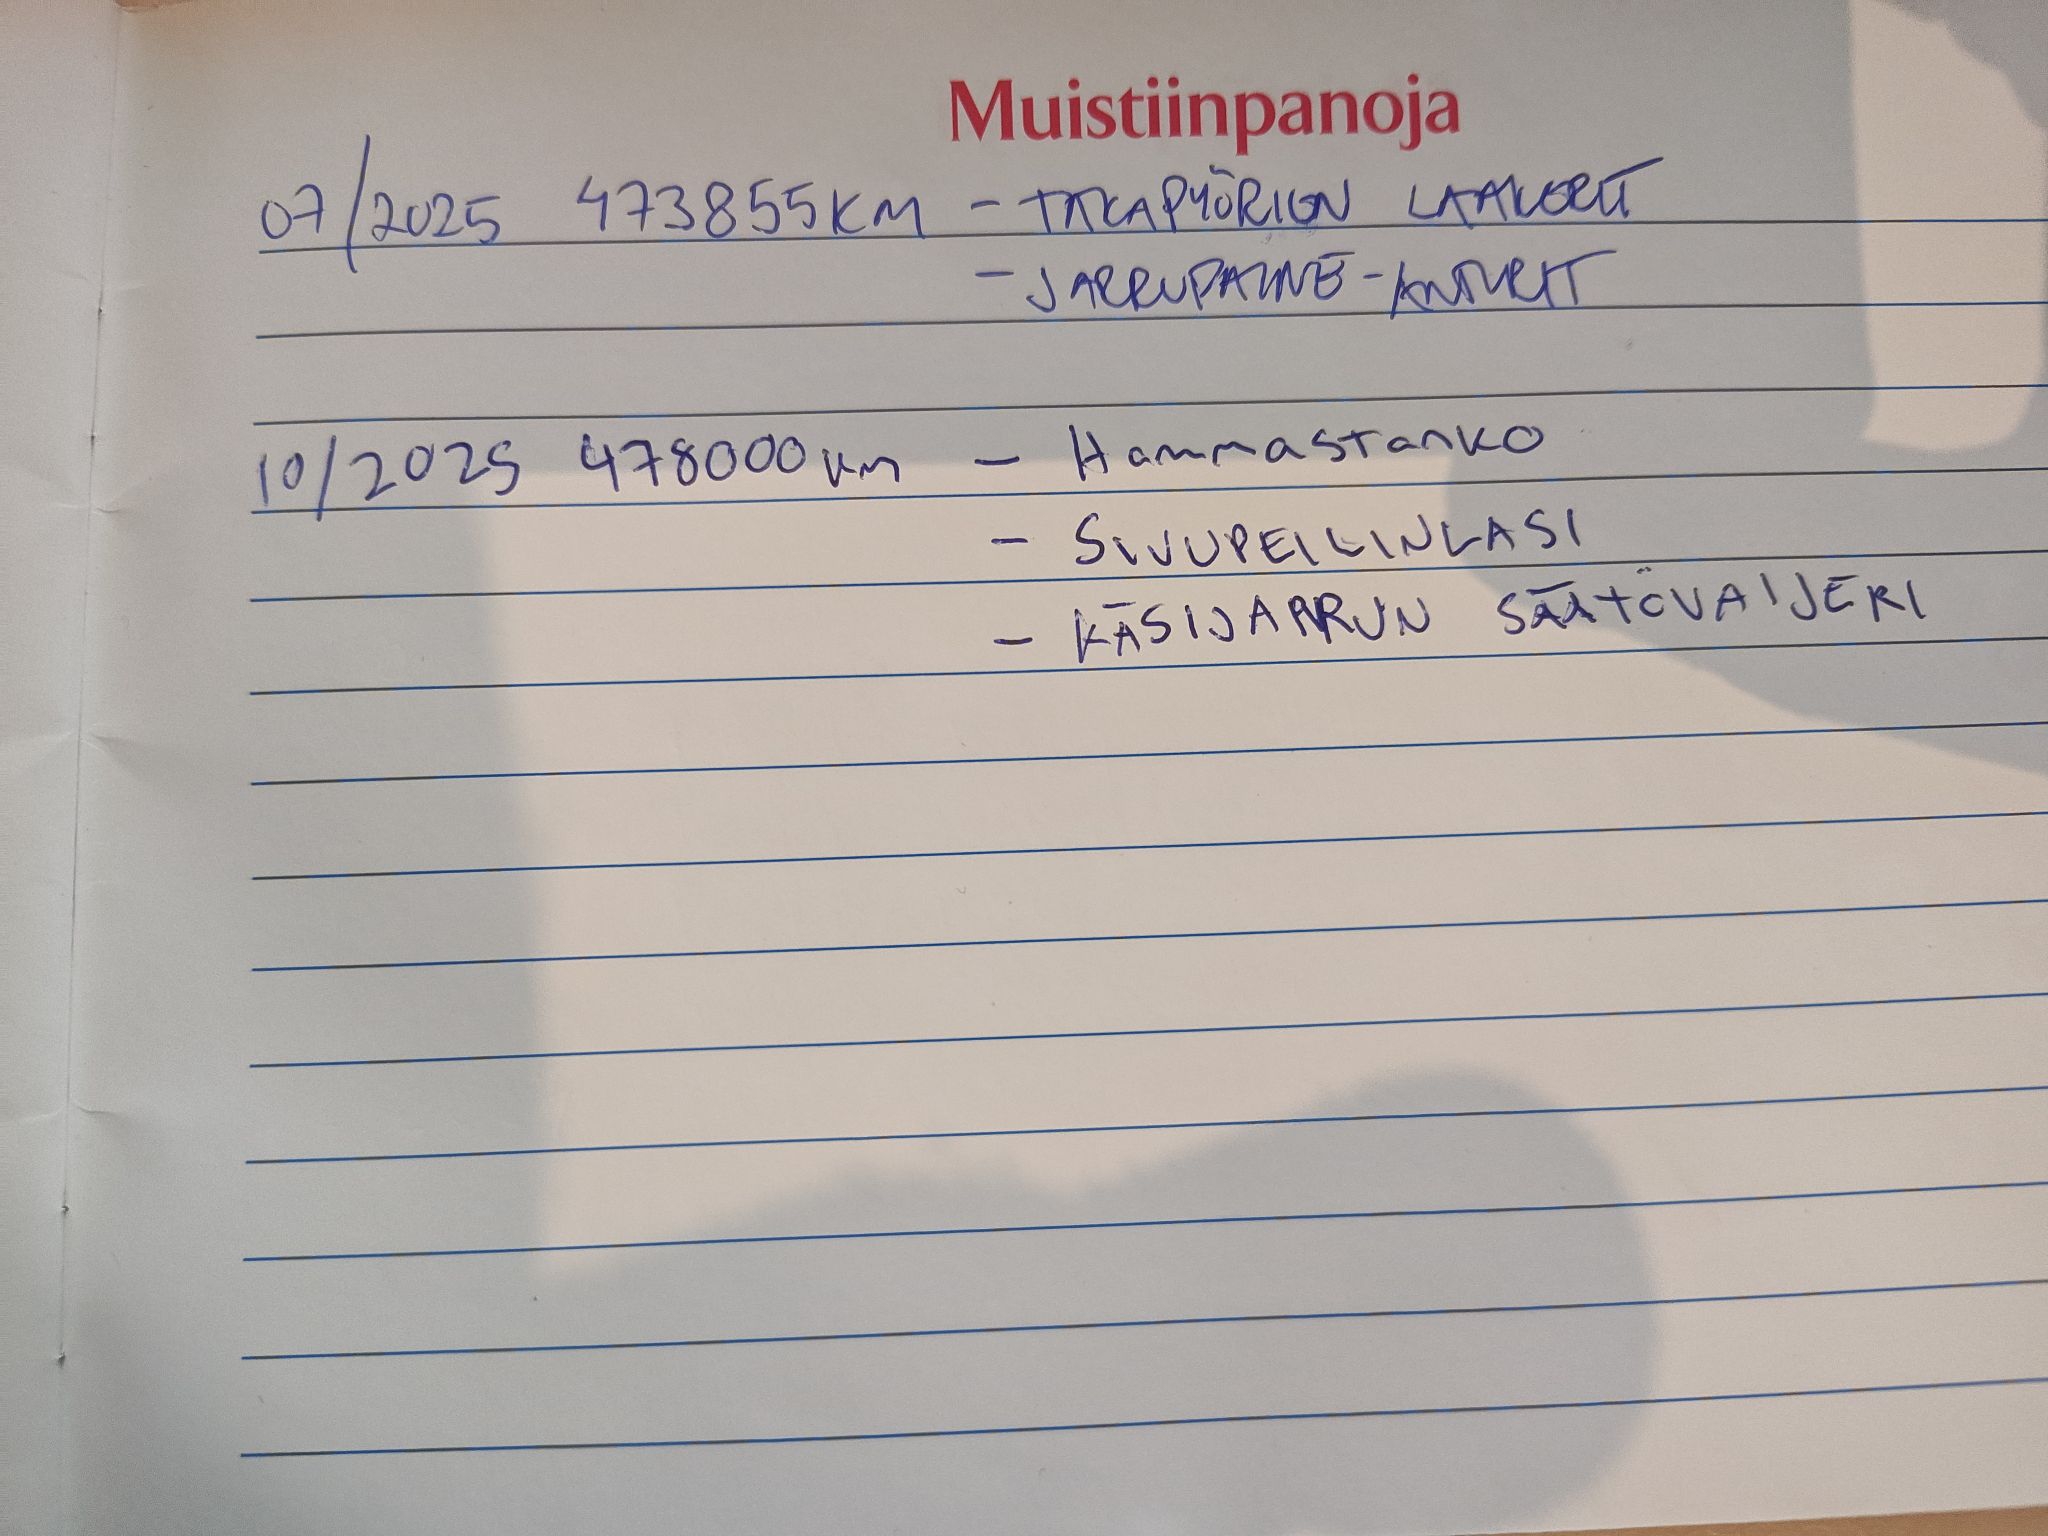 Muistiinpanoja
07/2025 473855KM - TAKAPYÖRIEN LAAKERIT
- JARRUPAINE-ANTURIT
10/2025 478000km - Hammastanko
- SIVUPEILINLASI
- KÄSIJARRUN SÄÄTÖVAIJERI